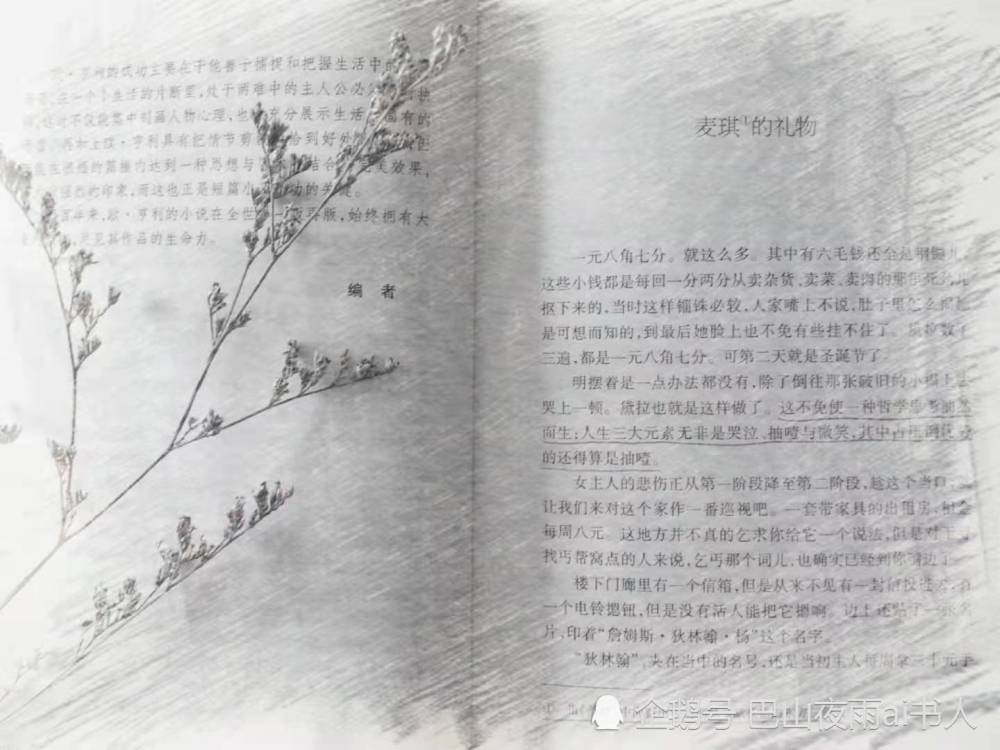 亨利的成功主要在于他善于捕捉和把握生活中的
在一个个生活的片断里,处于两难中的主人公必
这时不仅能集中刻画人物心理,也 充分展示生活 固有的
再加上欧·亨利具有把情节剪 恰到好
能在 的篇幅内达到一种思想与 结合 完美效果,
强烈的印象,而这也正是短篇小 力的关键。
百年来,欧·亨利的小说在全世 一版再版,始终拥有大
足见其作品的生命力。
编 者
麦琪¹的礼物
一元八角七分。就这么多。其中有六毛钱还全是
这些小钱都是每回一分两分从卖杂货、卖菜、卖肉的那
抠下来的,当时这样锱铢必较,人家嘴上不说,肚子里怎么
是可想而知的,到最后她脸上也不免有些挂不住了。黛拉数了
三遍,都是一元八角七分。可第二天就是圣诞节了
明摆着是一点办法都没有,除了倒往那张破旧的小榻上去
哭上一顿。黛拉也就是这样做了。这不免使一种哲学思考油然
而生:人生三大元素无非是哭泣、抽噎与微笑,其中占压倒优势
的还得算是抽噎。
女主人的悲伤正从第一阶段降至第二阶段,趁这个当口,
让我们来对这个家作一番巡视吧。一套带家具的出租房,租金
每周八元。这地方并不真的乞求你给它一个说法,但是对于
找丐帮窝点的人来说,乞丐那个词儿,也确实已经到你嘴边了
楼下门廊里有一个信箱,但是从来不见有一封信投进去,有
一个电铃摁钮,但是没有活人能把它摁响。边上还贴了一张名
片,印着“詹姆斯·狄林翰·杨”这个名字。
“狄林翰”,夹在当中的名号,还是当初主人每周拿三十元于
企鹅号 巴山夜雨ai书人